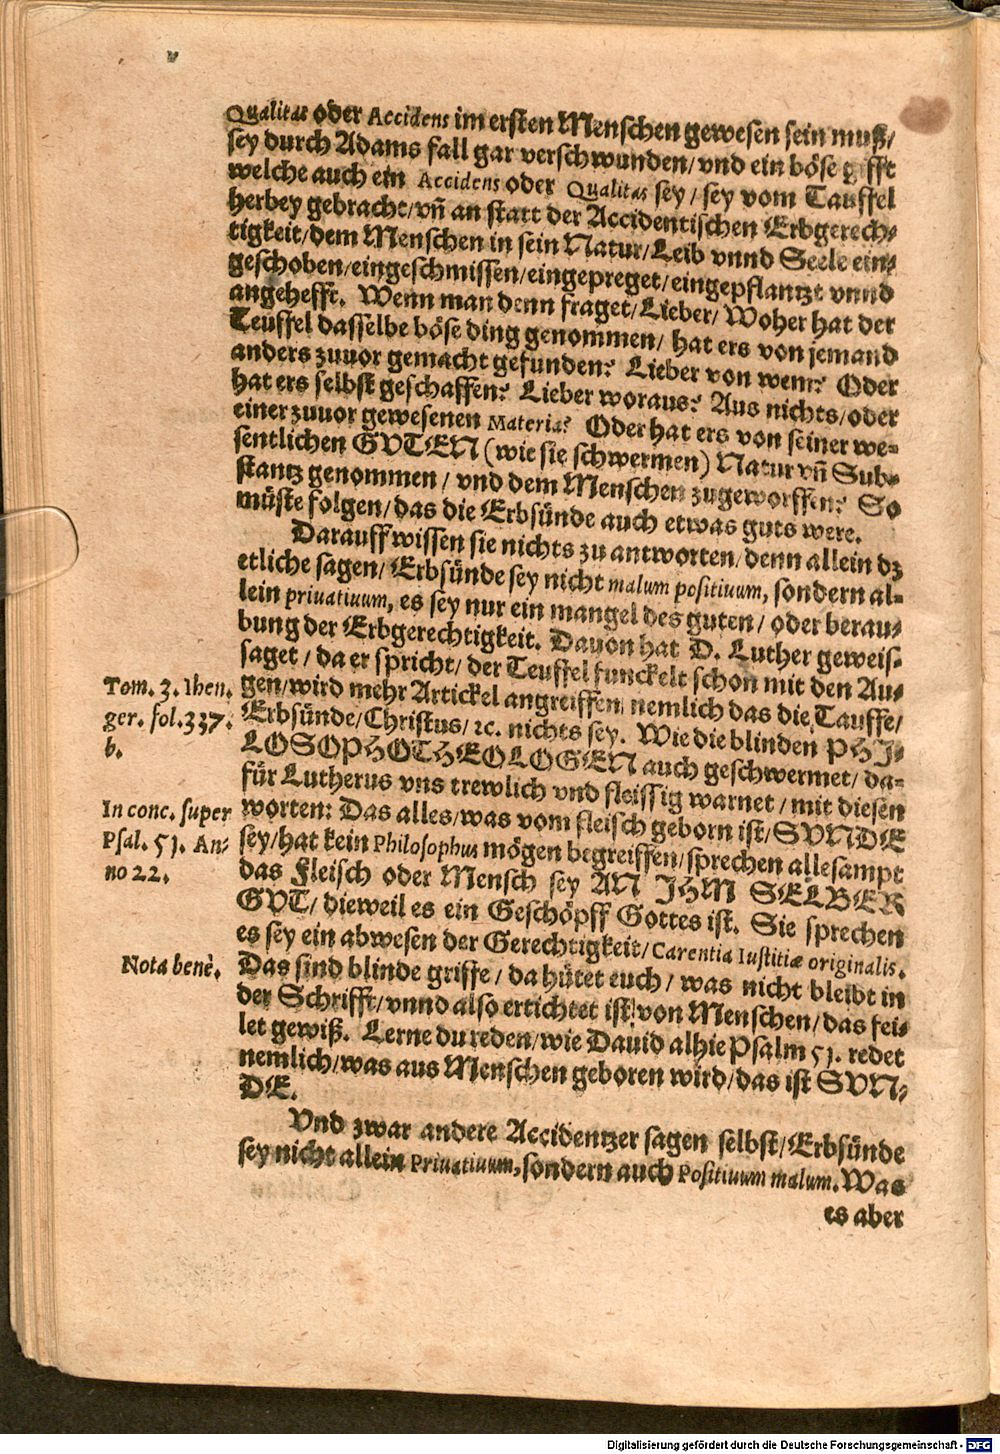 Qualitas oder Accidens im ersten Menschen gewesen sein muß/
sey durch Adams fall gar verschwunden/vnd ein böse gifft
welche auch ein Accidens oder Qualitas sey/sey vom Tauffel
herbey gebracht/vñ an statt der Accidentischen Erbgerech-
tigkeit/dem Menschen in sein Natur/Leib vnnd Seele ein-
geschoben/eingeschmissen/eingepreget/eingepflantzt vnnd
angehefft. Wenn man denn fraget/Lieber/Woher hat der
Teuffel dasselbe böse ding genommen/hat ers von jemand
anders zuuor gemacht gefunden? Lieber von wem? Oder
hat ers selbst geschaffen? Lieber woraus? Aus nichts/oder
einer zuuor gewesenen Materia? Oder hat ers von seiner we-
sentlichen GVTEN (wie sie schwermen) Natur vñ Sub-
stantz genommen/vnd dem Menschen zugeworffen? So
müste folgen/das die Erbsünde auch etwas guts were.
Darauff wissen sie nichts zu antworten/denn allein dz
etliche sagen/Erbsünde sey nicht malum positiuum, sondern al-
lein priuatiuum, es sey nur ein mangel des guten/oder berau-
bung der Erbgerechtigkeit. Dauon hat D. Luther geweis-
saget/da er spricht/der Teuffel funckelt schon mit den Au-
gen/wird mehr Artickel angreiffen/nemlich das die Tauffe/
Erbsünde/Christus/ꝛc. nichts sey. Wie die blinden PHI-
LOSOPHOTHEOLOGEN auch geschwermet/da-
für Lutherus vns trewlich vnd fleissig warnet/mit diesen
worten: Das alles/was vom fleisch geborn ist/SVNDE
sey/hat kein Philosophus mögen begreiffen/sprechen allesampt
das Fleisch oder Mensch sey AN JHM SELBER
GVT/dieweil es ein Geschöpff Gottes ist. Sie sprechen
es sey ein abwesen der Gerechtigkeit/Carentia Iustitiæ originalis.
Das sind blinde griffe/da hütet euch/was nicht bleibt in
der Schrifft/vnnd also ertichtet ist/von Menschen/das fei-
let gewiß. Lerne du reden/wie Dauid alhie Psalm 51. redet
nemlich/was aus Menschen geboren wird/das ist SVN-
DE.
Vnd zwar andere Accidentzer sagen selbst/Erbsünde
sey nicht allein Priuatiuum, sondern auch Positiuum malum. Was
es aber
Tom. 3. Ihen.
ger. fol. 337.
b.
In conc. super
Psal. 51. An-
no 22.
Nota benè.
Digitalisierung gefördert durch die Deutsche Forschungsgemeinschaft - DFG